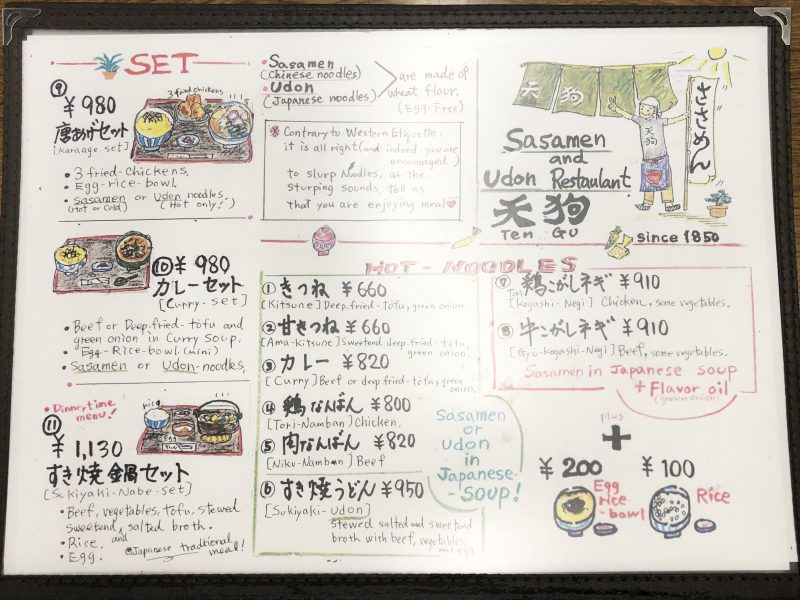 SET
⑨
¥980
唐あげセット
[Karaage-set]
3 fried chickens
• 3 fried-chickens,
• Egg-rice-bowl.
• Sasamen or Udon noodles
(Hot or Cold) (Hot only!)
⑩ ¥980
カレーセット
[Curry-set]
• Beef or Deep-fried-tofu and
green onion in Curry Soup.
• Egg-Rice-bowl (mini)
• Sasamen or Udon-noodles,
• Dinnertime
menu!
⑪
¥1,130
rice
Egg
すき焼鍋セット
[Sukiyaki-Nabe-set]
• Beef, vegetables, tofu, stewed
sweetend, salted broth.
and
• Rice.
• Egg.
• Japanese traditional
meal!
• Sasamen
(Chinese noodles)
• Udon
(Japanese noodles)
are made of
wheat flour.
(Egg-Free)
※ Contrary to Western Etiquette -
it is all right (and indeed, you are
encouraged.)
to slurp Noodles, as the
slurping sounds, tell us
that you are enjoying meal
天狗
天狗
ささめん
Sasamen
and
Udon Restaulant
天狗
Ten Gu
since 1850
HOT-NOODLES
① きつね ¥660
[Kitsune] Deep-fried-tofu, green onion.
② 甘きつね ¥660
[Ama-kitsune] Sweetend deep-fried-tofu,
green onion.
③ カレー ¥820
[Curry] Beef or deep-fried-tofu,
green onion.
④ 鶏なんばん ¥800
[Tori-Namban] Chicken.
⑤ 肉なんばん ¥820
[Niku-Namban] Beef
⑥ すき焼うどん ¥950
[Sukiyaki-Udon]
Stewed salted and sweetend
broth with beef, vegetables,
and egg
Sasamen
or
Udon
in
Japanese-
-SOUP!
⑦ 鶏こがしネギ ¥910
Tori
[Kogashi-Negi] Chicken, some vegetables.
⑧ 牛こがしネギ ¥910
[Gyu-Kogashi-Negi] Beef, some vegetables.
Sasamen in Japanese soup
+ Flavor oil
(green onion)
plus
+
¥200
Egg
rice-
bowl
¥100
Rice